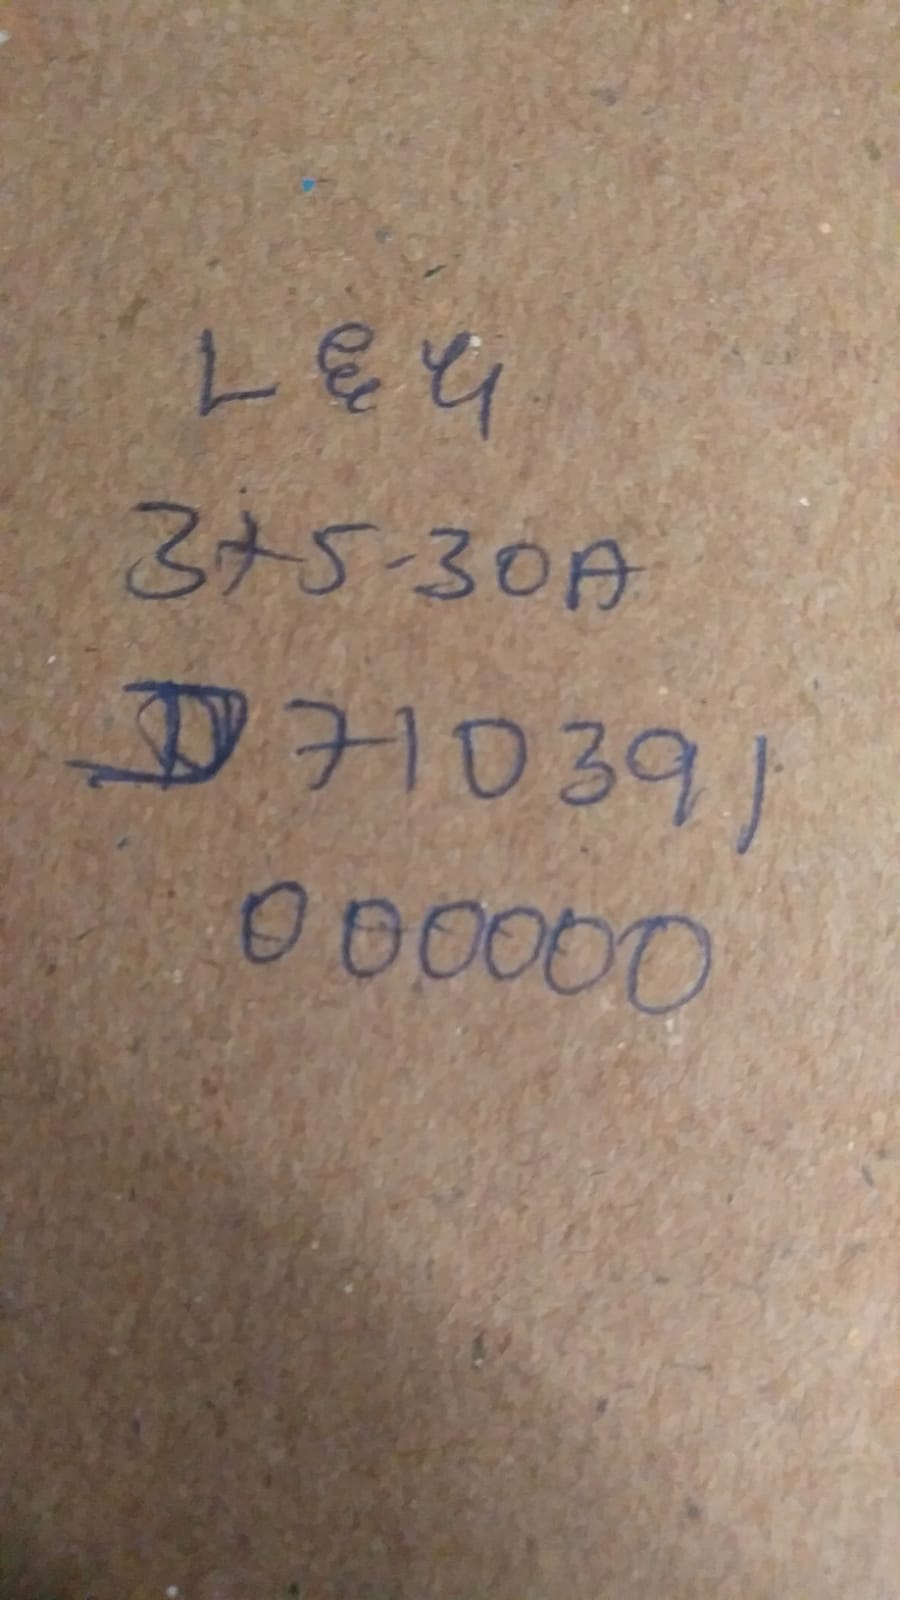 L & G
3x5-30A
D 710391
000000